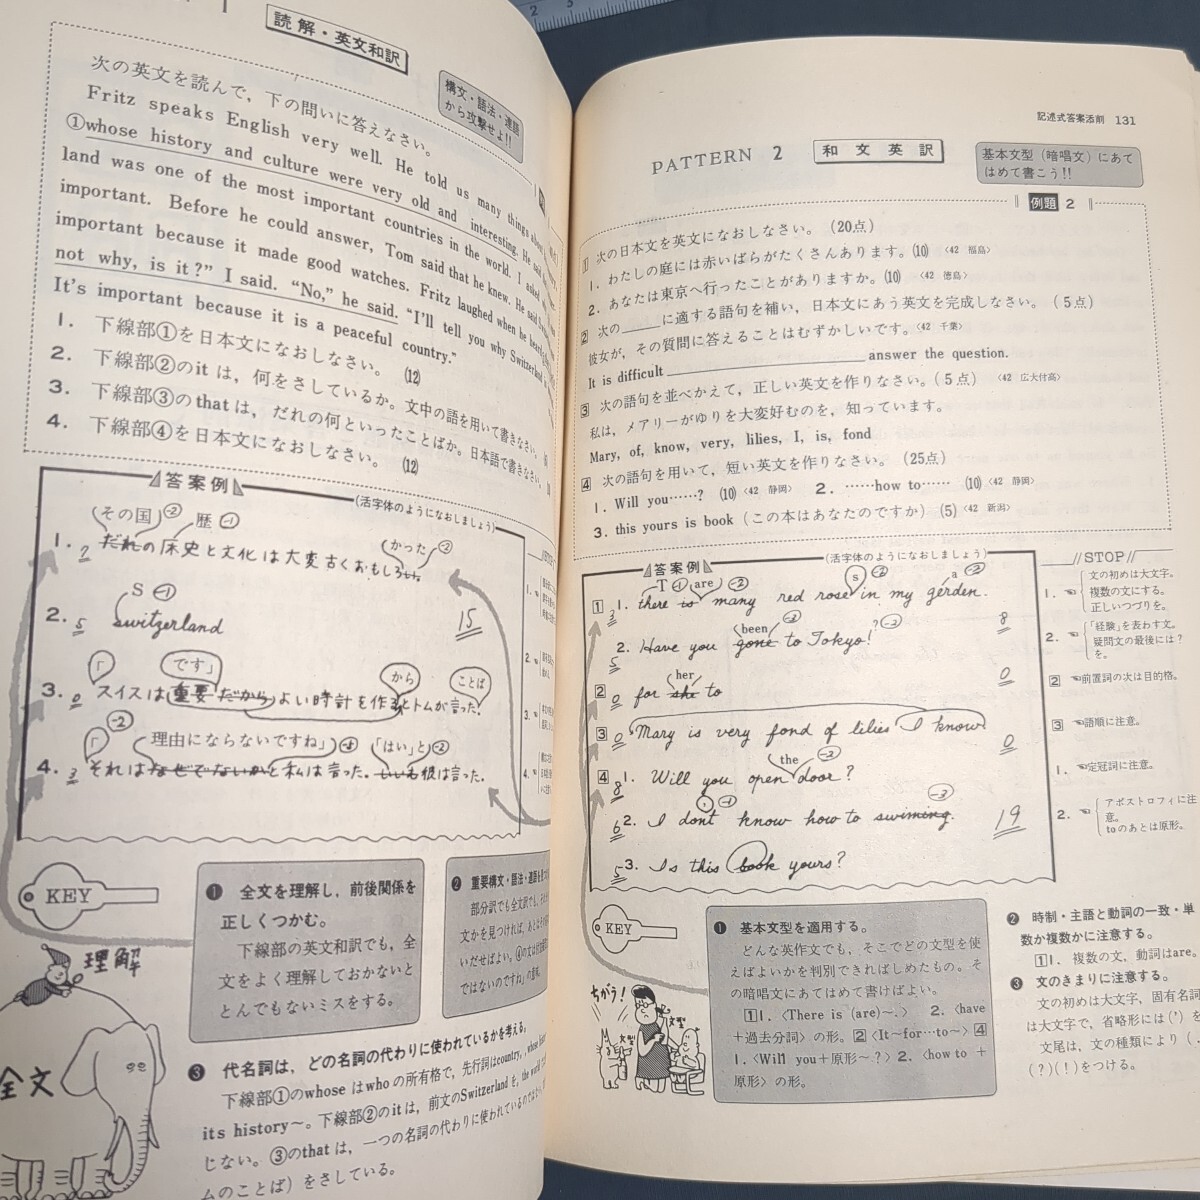 読解・英文和訳
構文・語法・連語
から攻撃せよ!!
次の英文を読んで，下の問いに答えなさい。
Fritz speaks English very well. He told us many things about
①whose history and culture were very old and interesting. He said
land was one of the most important countries in the world. I asked
important. Before he could answer, Tom said that he knew. He said
important because it made good watches. Fritz laughed when he heard
not why, is it?” I said. “No,” he said. “I'll tell you why Switzerland
It's important because it is a peaceful country.”
1. 下線部①を日本文になおしなさい。 (12)
2. 下線部②のit は，何をさしているか。文中の語を用いて書きなさい。
3. 下線部③のthat は，だれの何といったことばか。日本語で書きなさい。
4. 下線部④を日本文になおしなさい。 (12)
答案例
(活字体のようになおしましょう)
その国 -2 歴 -1 かった -2
1. 2 だれの床史と文化は大変古くおもしろい.
S -1
2. 5 switzerland 15
「 です」 から ことば
3. 0 スイスは重要だからよい時計を作るとトムが言った.
「 -2 理由にならないですね」 「はい」と -2
4. 3 それはなぜでないかと私は言った. しいる彼は言った.
KEY
理解
全文
❶ 全文を理解し，前後関係を
正しくつかむ。
下線部の英文和訳でも，全
文をよく理解しておかないと
とんでもないミスをする。
❷ 重要構文・語法・連語を
部分訳でも全文訳でも，
文かを見つければ，
いだせばよい。
ではないのですね」の意味。
❸ 代名詞は，どの名詞の代わりに使われているかを考える。
下線部①のwhose はwho の所有格で，先行詞はcountry,
its history〜。下線部②のit は，前文のSwitzerland を，
じない。③のthat は，一つの名詞の代わりに使われているのではなく，
ムのことば）をさしている。
記述式答案活削 131
PATTERN 2 和文英訳
基本文型（暗唱文）にあて
はめて書こう!!
例題 2
1 次の日本文を英文になおしなさい。（20点）
1. わたしの庭には赤いばらがたくさんあります。(10) 〈42 福島〉
2. あなたは東京へ行ったことがありますか。(10) 〈42 徳島〉
2 次の＿＿＿に適する語句を補い，日本文にあう英文を完成しなさい。（5点）
彼女が，その質問に答えることはむずかしいです。〈42 千葉〉
It is difficult ＿＿＿＿＿＿ answer the question.
3 次の語句を並べかえて，正しい英文を作りなさい。（5点） 〈42 広大付高〉
私は，メアリーがゆりを大変好むのを，知っています。
Mary, of, know, very, lilies, I, is, fond
4 次の語句を用いて，短い英文を作りなさい。（25点）
1. Will you……? (10) 〈42 静岡〉 2. ……how to…… (10) 〈42 静岡〉
3. this yours is book（この本はあなたのですか）(5) 〈42 新潟〉
答案例
(活字体のようになおしましょう)
T -1 are -2 s -2 a -2
1 1. there is many red rose in my gerden.
3
been -3 ? -2
2. Have you gone to Tokyo! 8
5
her
2 0 for she to 0
3 0 Mary is very fond of lilies I know 0
the -2
4 1. Will you open door?
8
' -1 -3
6 2. I dont know how to swiming. 19
5 3. Is this book yours?
STOP
1. 文の初めは大文字。
複数の文にする。
正しいつづりを。
2. 「経験」を表わす文。
疑問文の最後には？
を。
2 前置詞の次は目的格。
3 語順に注意。
1. 定冠詞に注意。
2. アポストロフィに注
意。
toのあとは原形。
KEY
ちがう！
文型
文型
❶ 基本文型を適用する。
どんな英作文でも，そこでどの文型を使
えばよいかを判別できればしめたもの。そ
の暗唱文にあてはめて書けばよい。
1 1.〈There is (are)〜.〉 2.〈have
＋過去分詞〉の形。2〈It〜for…to〜〉4
1.〈Will you＋原形〜?〉2.〈how to ＋
原形〉の形。
❷ 時制・主語と動詞の一致・単
数か複数かに注意する。
1 1. 複数の文，動詞はare。
❸ 文のきまりに注意する。
文の初めは大文字，固有名詞
は大文字で，省略形には（'）を
文尾は，文の種類により（.
(？)(！)をつける。